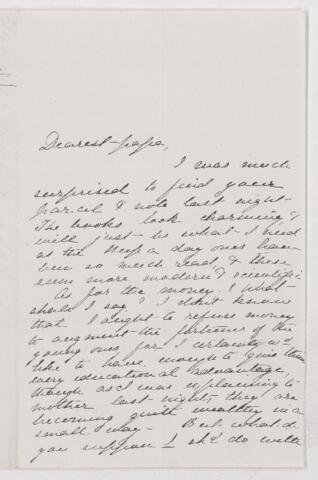 Dearest papa,
I was much
surprised to find your
parcel & note last night
The books look charming &
will just be what I need
as the Step a day ones have
been so much read, & these
seem more modern & scientific
As for the money! What
shall I say? I didn't know
that I ought to refuse money
to augment the portions of the
young ones, for I certainly wd
like to have enough to give them
every educational advantage,
though as I was explaining to
mother last night, they are
becoming quite wealthy in a
small way. But what do
you suppose I shd do with